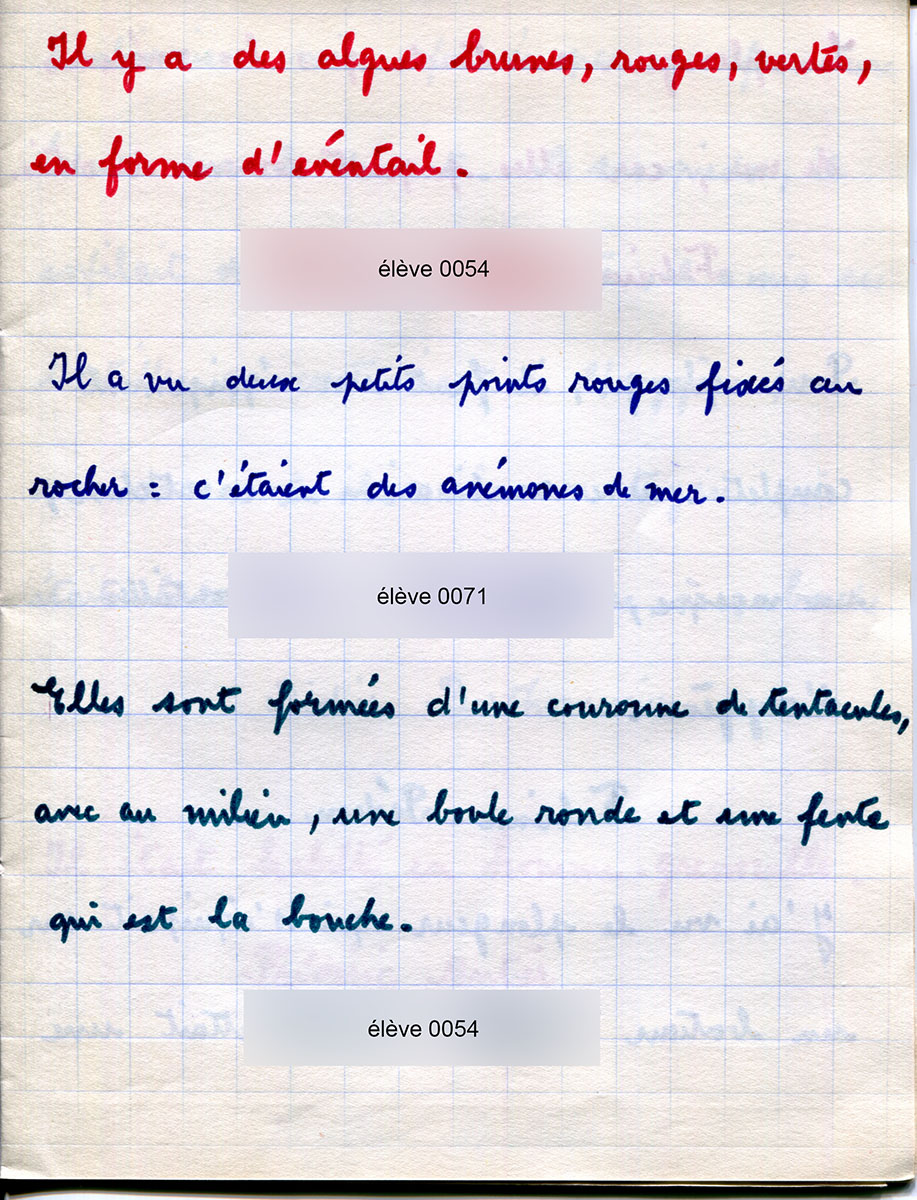 Il y a des algues brunes, rouges, vertes,
en forme d'événtail.
élève 0054
Il a vu deux petits points rouges fixés au
rocher : c'étaient des anémones de mer.
élève 0071
Elles sont formées d'une couronne de tentacules,
avec au milieu, une boule ronde et une fente
qui est la bouche.
élève 0054